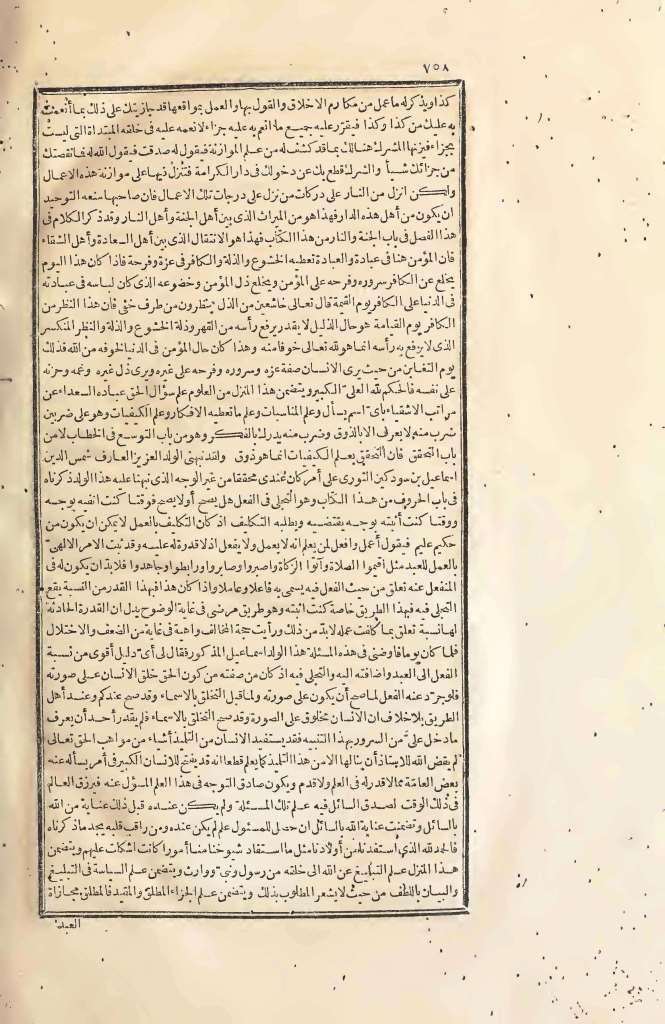 ٧٥٨
كذا ويذكر له ما عمل من مكارم الاخلاق والقول بها والعمل بمواقعها قد جازيتك على ذلك بما أنعمت
به عليك من كذا وكذا فيقرّر عليه جميع ما أنعم به عليه جزاء لا نعمه عليه في خلقه المبتداة التي ليست
بجزاء فيزنها المشرك هنالك بما قد كشف له من علم الموازنة فيقول له صدقت فيقول الله له فما نقصتك
من جزائك شيأ والشرك قطع بك عن دخولك في دار الكرامة فتنزل فيها على موازنة هذه الاعمال
ولكن انزل من النار على دركات من نزل على درجات تلك الاعمال فان صاحبها منعه التوحيد
ان يكون من أهل هذه الدار فهذا هو من الميراث الذى بين أهل الجنة وأهل النار وقد ذكر الكلام فى
هذا الفصل فى باب الجنة والنار من هذا الكتاب فهذا هو الانتقال الذى بين أهل السعادة وأهل الشقاء
فان المؤمن هنا فى عبادة والعبادة تعطيه الخشوع والذلة والكافر فى عزة وفرحة فاذا كان هذا اليوم
يخلع عن الكافر سروره وفرحه على المؤمن ويخلع ذل المؤمن وخضوعه الذى كان لباسه فى عبادته
فى الدنيا على الكافر يوم القيمة قال تعالى خاشعين من الذل ينظرون من طرف خفىّ فان هذا النظر من
الكافر يوم القيامة هو حال الذليل لا يقدر يرفع رأسه من القهر وذلة الخشوع والذلة والنظر المنكسر
الذى لا يرفع به رأسه انما هو لله تعالى خوفا منه وهذا كان حال المؤمن فى الدنيا لخوفه من الله فذلك
يوم التغابن من حيث يرى الانسان صفة عزه وسروره وفرحه على غيره ويرى ذل غيره وغمه وحزنه
على نفسه فالحكم لله العلىّ الكبير ويتضمن هذا المنزل من العلوم علم سؤال الحق عباده السعداء عن
مراتب الاشقياء بأىّ اسم يسأل وعلم المناسبات وعلم ما تعطيه الافكار وعلم الكيفيات وهو على ضربين
ضرب منه لا يعرف الا بالذوق وضرب منه يدرك بالفكر وهو من باب التوسع فى الخطاب لا من
باب التحقق فان التحقق بعلم الكيفيات انما هو ذوق ولقد نبهنى الولد العزيز العارف شمس الدين
اسماعيل بن سودكين التورى على أمر كان عندى محققا من غير الوجه الذى نبهنا عليه هذا الولد ذكرناه
فى باب الحروف من هذا الكتاب وهو التجلى فى الفعل هل يصح أولا يصح فوقتا كنت انفيه بوجه
ووقتا كنت أثبته بوجه يقتضيه ويطلبه التكليف اذ كان التكليف بالعمل لا يمكن ان يكون من
حكيم عليم فيقول أعمل وافعل لمن يعلم انه لا يعمل ولا يفعل اذ لا قدرة له عليه وقد ثبت الامر الالهىّ
بالعمل للعبد مثل اقيموا الصلاة وآتوا الزكاة واصبروا وصابروا ورابطوا وجاهدوا فلا بدّ ان يكون له فى
المنفعل عنه تعلق من حيث الفعل فيه يسمى به فاعلا وعاملا واذا كان هذا فبهذا القدر من النسبة يقع
التجلى فيه فبهذا الطريق خاصة كنت اثبته وهو طريق مرضى فى غاية الوضوح يدل ان القدرة الحادثة
لها نسبة تعلق بما كلفت عمله لا بدّ من ذلك ورأيت حجة المخالف واهية فى غاية من الضعف والاختلال
فلما كان يوما فاوضنى فى هذه المسئلة هذا الولد اسماعيل المذكور فقال لى أىّ دليل أقوى من نسبة
الفعل الى العبد واضافته اليه والتجلى فيه اذ كان من صفته من كون الحق خلق الانسان على صورته
فلو جرّد عنه الفعل لما صح أن يكون على صورته ولما قبل التخلق بالاسماء وقد صح عندكم وعند أهل
الطريق بلا خلاف ان الانسان مخلوق على الصورة وقد صح التخلق بالاسماء فلم يقدر أحد أن يعرف
ما دخل علىّ من السرور بهذا التنبيه فقد يستفيد الاستاذ من التلميذ أشياء من مواهب الحق تعالى
لم يقض الله للاستاذ أن ينالها الا من هذا التلميذ كما يعلم قطعا انه قد يفتح للانسان الكبير فى أمر يسأله عنه
بعض العامّة مما لا قدر له فى العلم ولا قدم ويكون صادق التوجه فى هذا العلم المسؤل عنه فيرزق العالم
فى ذلك الوقت لصدق السائل فيه علم تلك المسئلة ولم يكن عنده قبل ذلك عناية من الله
بالسائل وتضمنت عناية الله بالسائل ان حصل للمسئول علم لم يكن عنده ومن راقب قلبه يجد ما ذكرناه
فالحمد لله الذى استفدنا من أولادنا مثل ما استفاد شيوخنا منا أمورا كانت اشكلت عليهم ويتضمن
هذا المنزل علم التبليغ عن الله الى خلقه من رسول ونبىّ ووارث ويتضمن علم السياسة فى التبليغ
والبيان باللطف من حيث لا يشعر المطلوب بذلك ويتضمن علم الجزاء المطلق والمقيد فالمطلق مجازاة
العبد